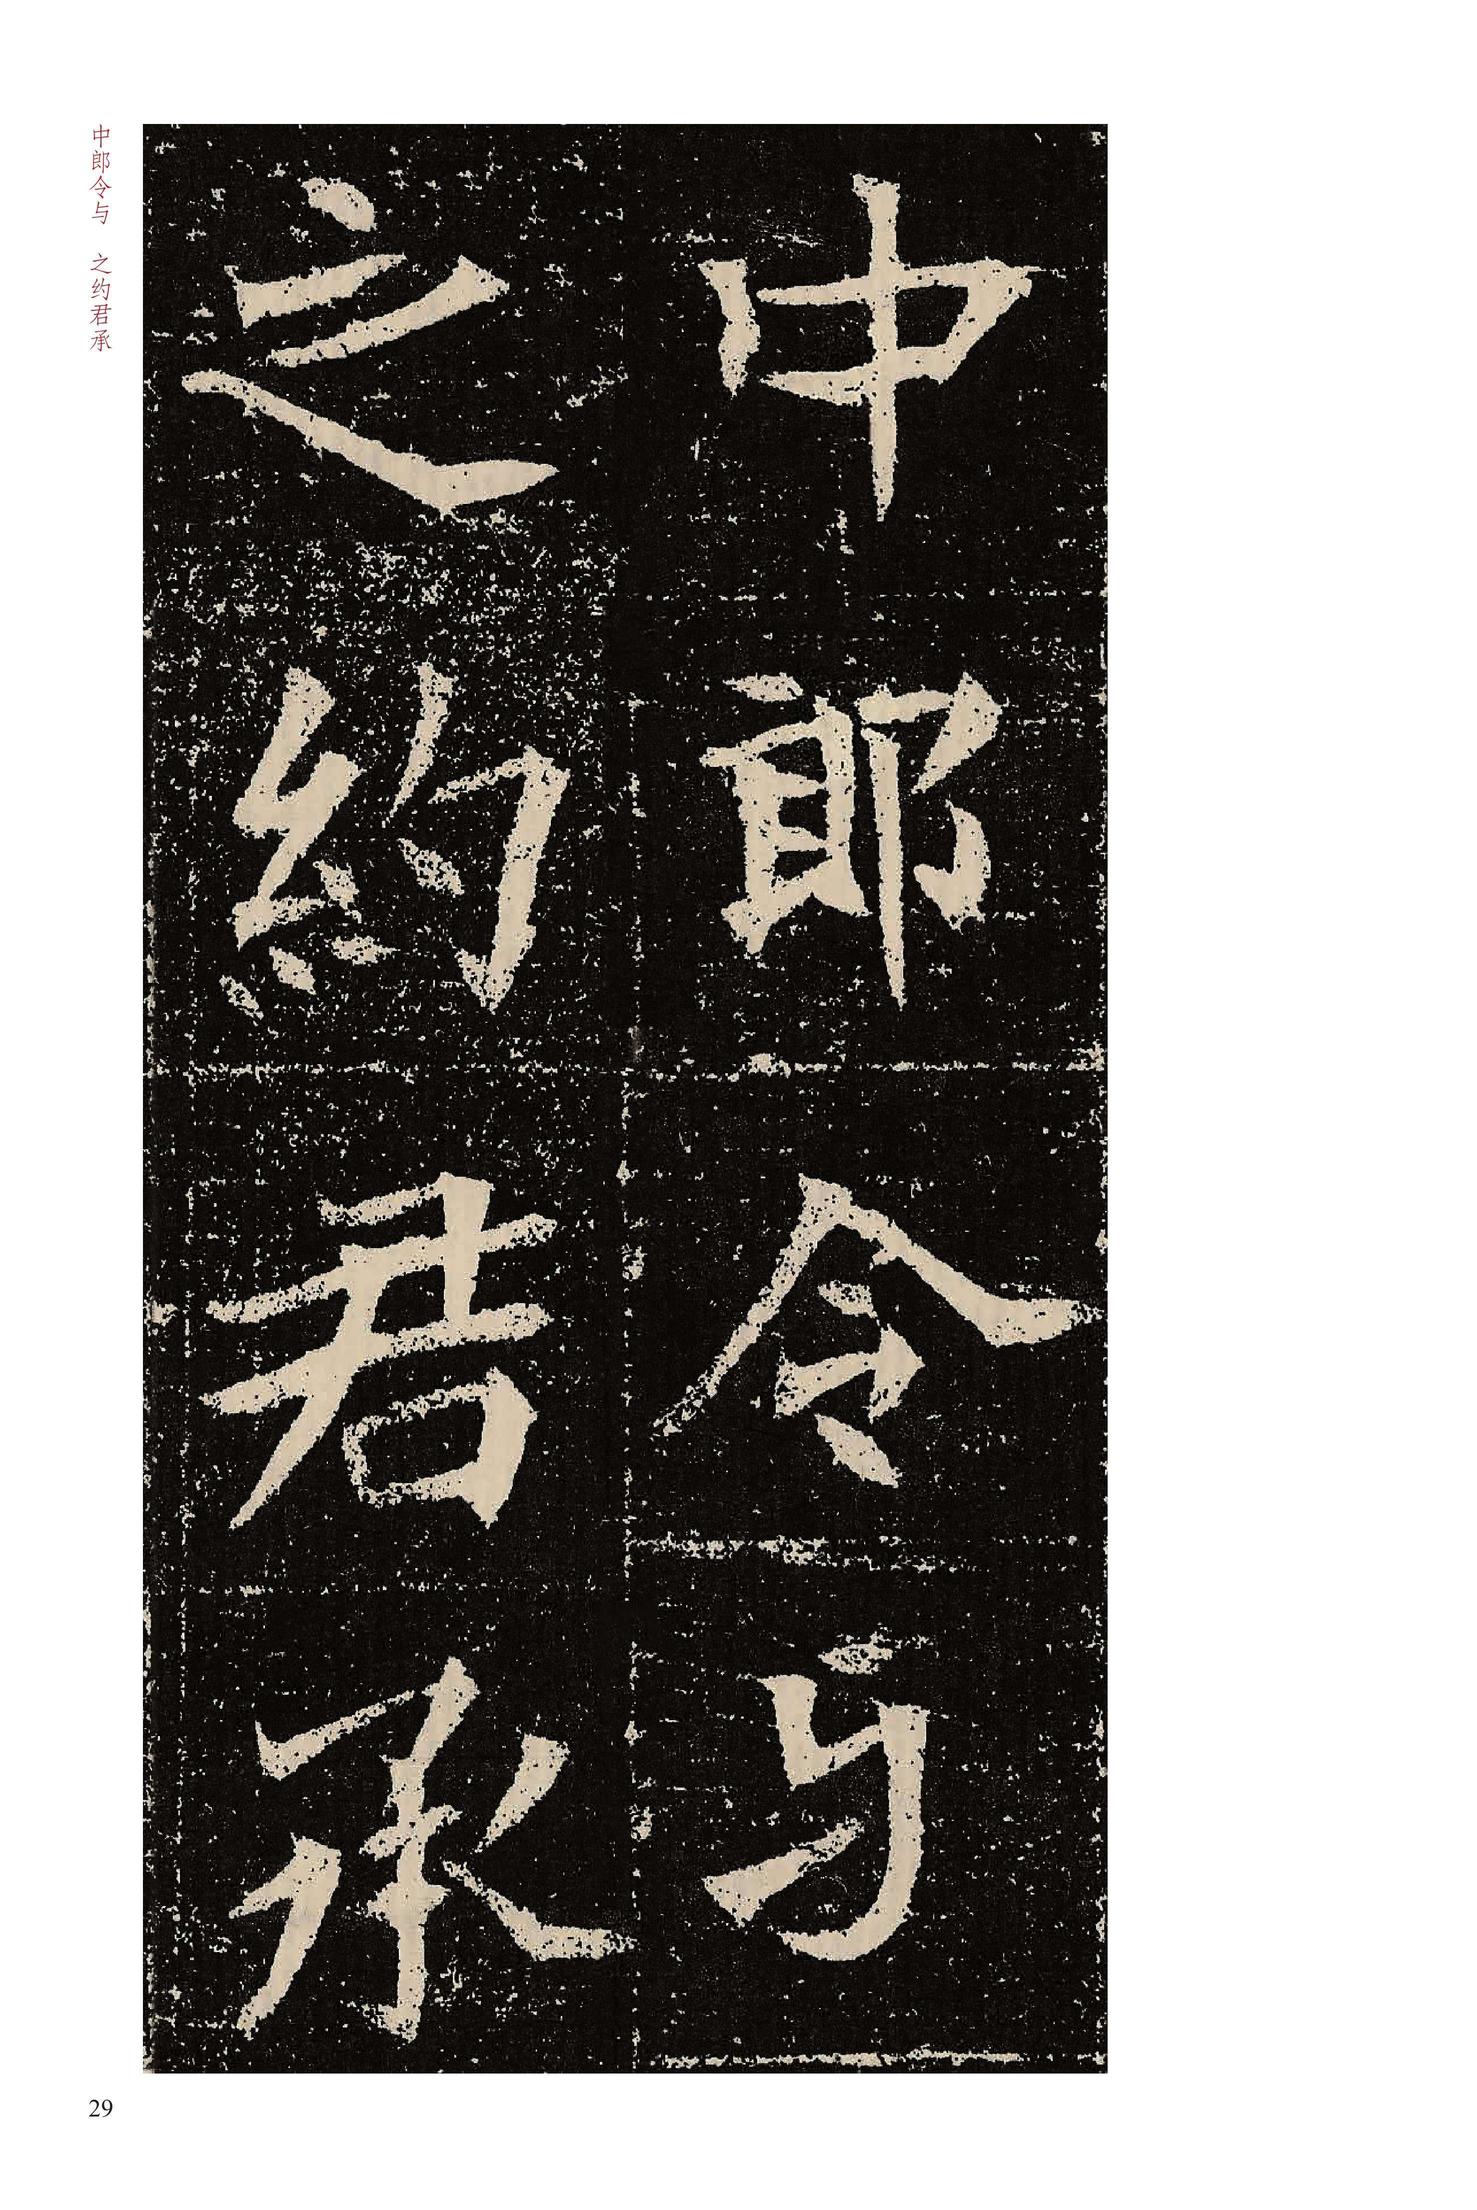 中郎令与
之約君承
中郎令与 之约君承
29